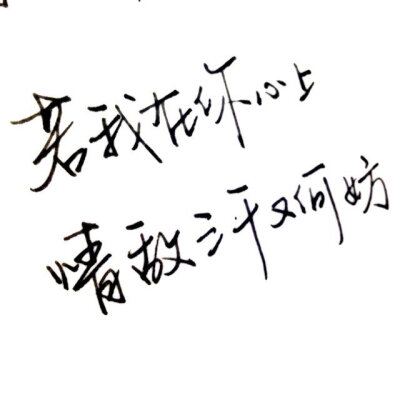 若我在你心上
情敌三千又何妨